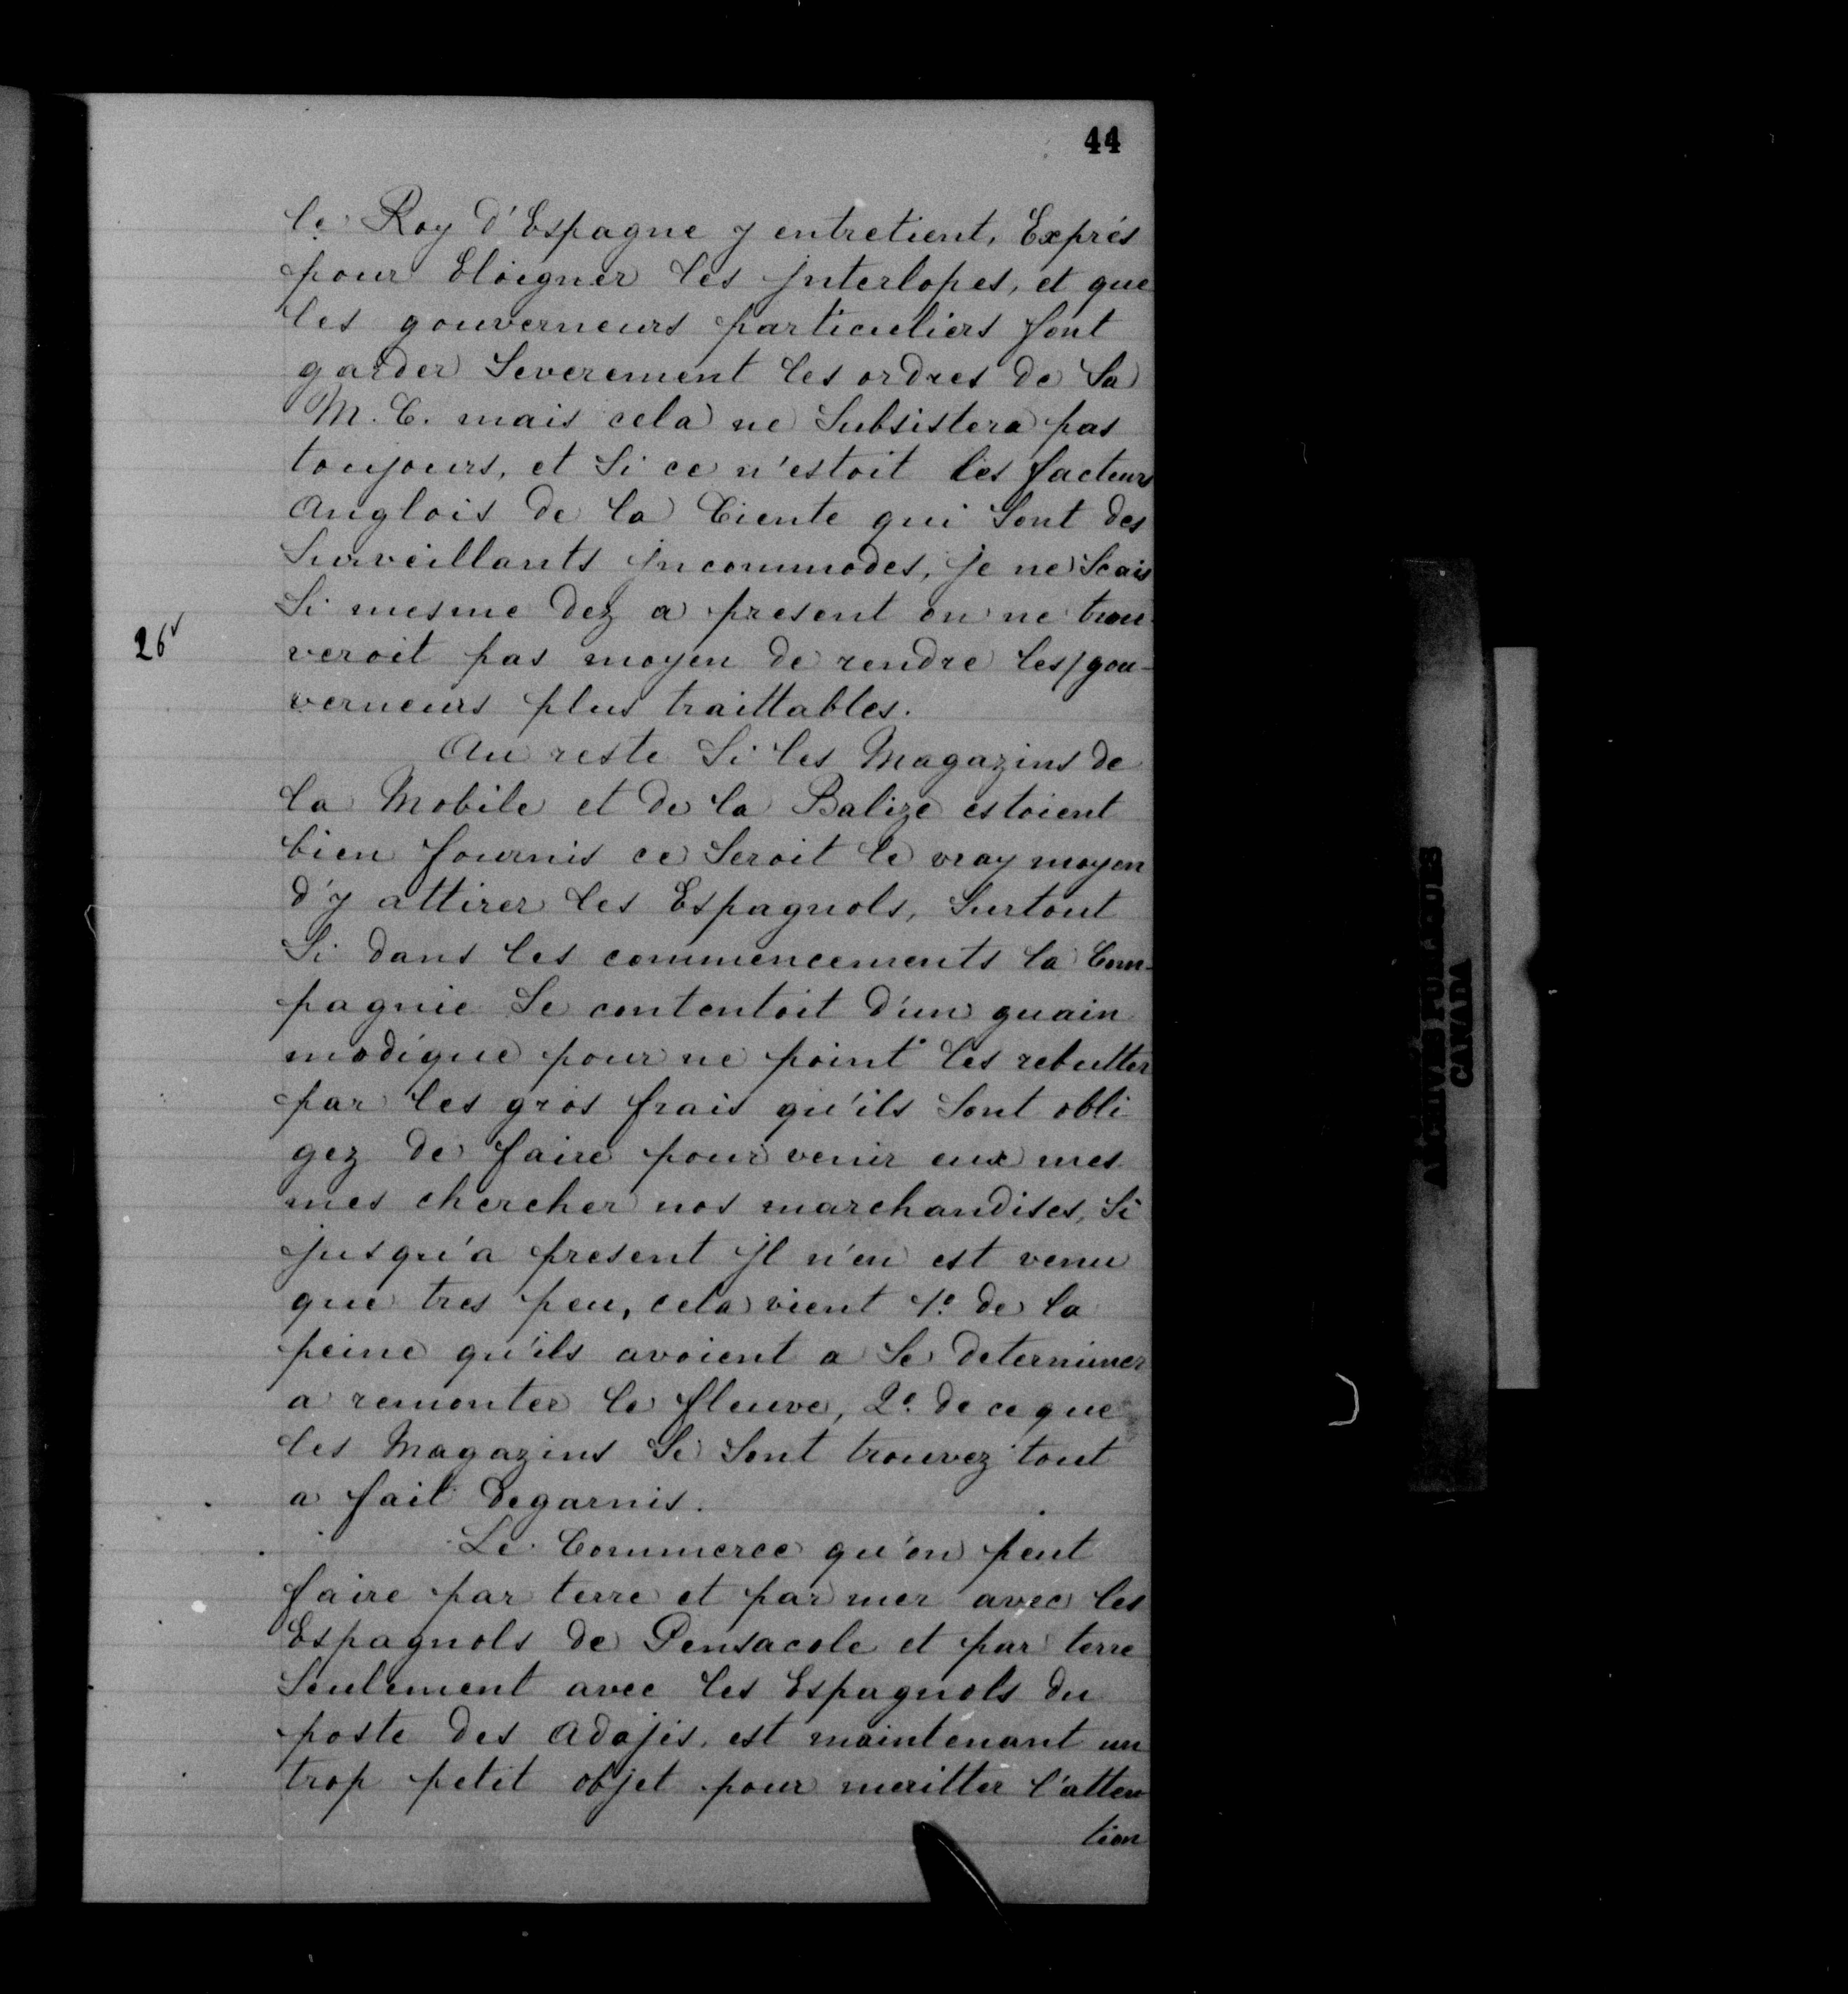 44
le Roy d'Espagne y entretient, Exprés
pour Eloigner les jnterlopes, et que
les gouverneurs particuliers font
garder Severement les ordres de Sa
M. C. mais cela ne Subsistera pas
toujours, et Si ce n'estoit les facteurs
Anglois de la Ciente qui Sont des
Surveillants jncommodes, je ne Scais
Si mesme dez a present on ne trou-
26v
veroit pas moyen de rendre les/gou-
verneurs plus traittables.
Au reste Si les Magazins de
la Mobile et de la Balize estoient
bien fournis ce Seroit le vray moyen
d'y attirer les Espagnols, Surtout
Si dans les commencements la Com-
pagnie Se contentoit d'un guain
modique pour ne point les rebutter
par les gros frais qu'ils Sont obli
gez de faire pour venir eux mes
mes chercher nos marchandises, Si
jusqu'a present jl n'en est venu
que tres peu, cela vient 1º. de la
peine qu'ils avoient a Se determiner
a remonter le fleuve, 2º. de ce que
les Magazins Se Sont trouvez tout
a fait degarnis.
Le Commerce qu'on peut
faire par terre et par mer avec les
Espagnols de Pensacole et par terre
Seulement avec les Espagnols du
poste des Adajis, est maintenant un
trop petit objet pour meritter l'atten
tion
ARCHIVES PUBLIQUES
CANADA